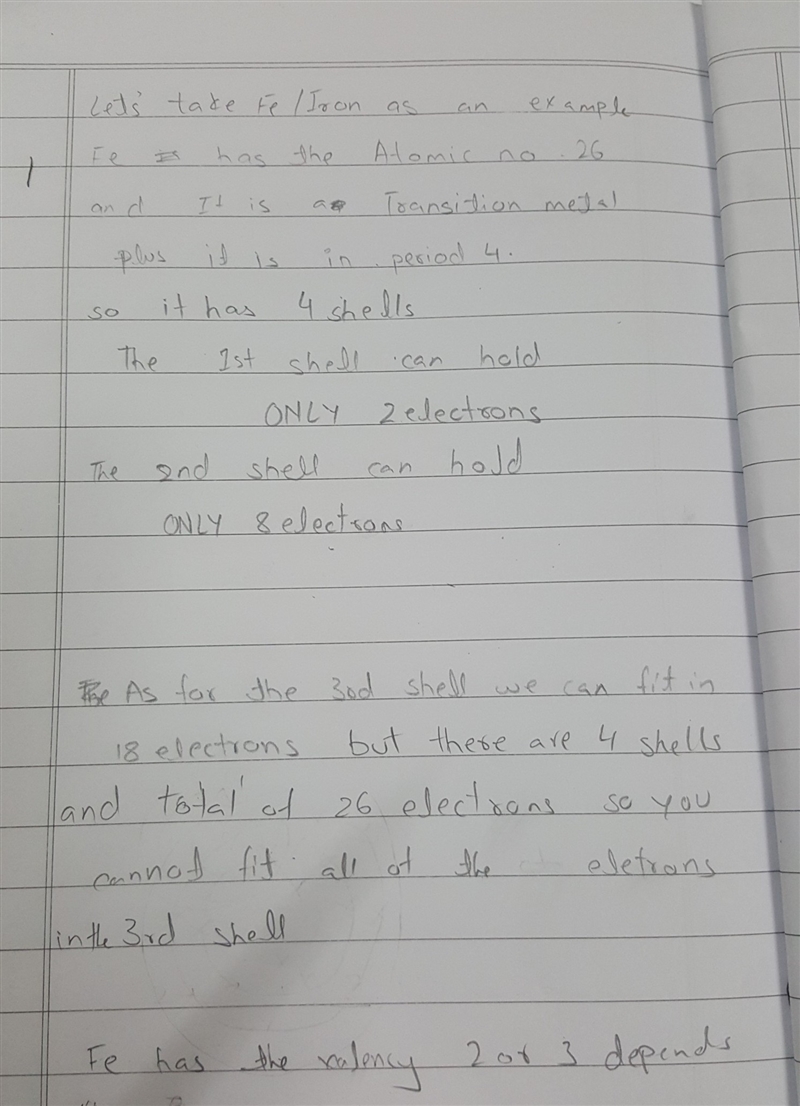 Let's take Fe/Iron as an example
1
Fe has the Atomic no. 26
and It is a Transition metal
plus it is in period 4.
so it has 4 shells
The 1st shell can hold
ONLY 2 electrons
The 2nd shell can hold
ONLY 8 electrons
As for the 3rd shell we can fit in
18 electrons but there are 4 shells
and total of 26 electrons so you
cannot fit all of the eletrons
in the 3rd shell
Fe has the valency 2 or 3 depends